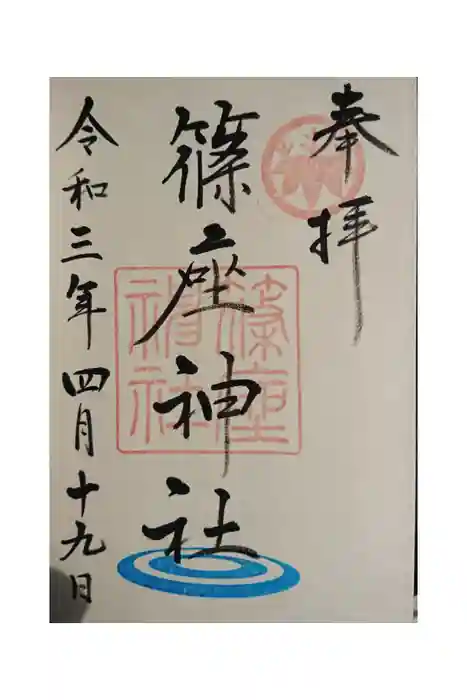 奉拝
篠座神社
篠座
神社
令和三年四月十九日